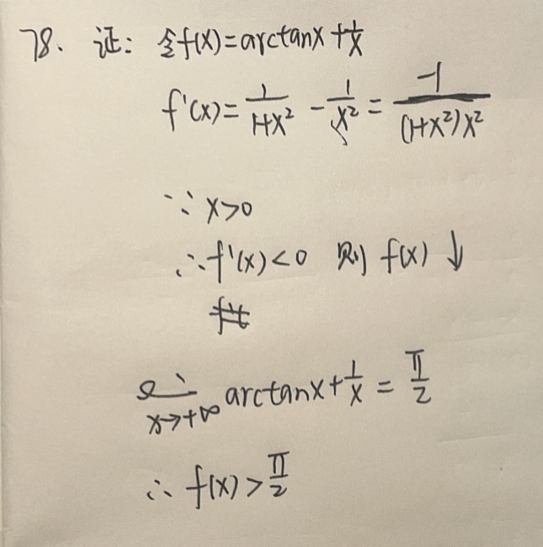 78. 证: 令f(x)=arctanx+1/x
f'(x)=1/(1+x²) - 1/x² = -1/((1+x²)x²)
∵ x>0
∴ f'(x)<0 则 f(x) ↓
lim x→+∞ arctanx+1/x = π/2
∴ f(x)>π/2